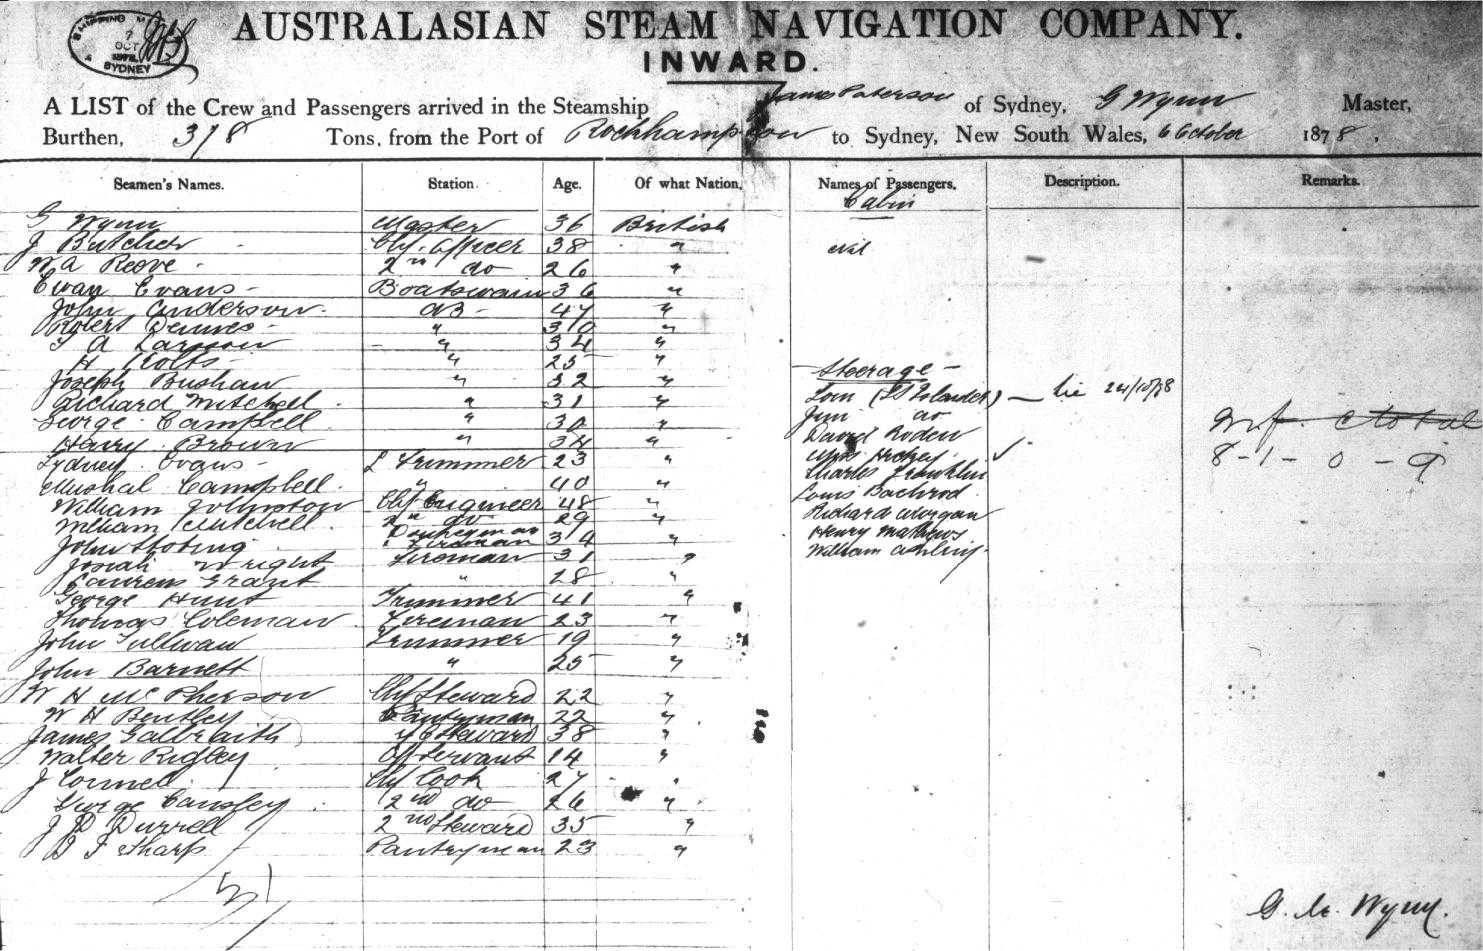 SHIPPING M
7
OCT
1878
SYDNEY
AUSTRALASIAN STEAM NAVIGATION COMPANY.
INWARD.
A LIST of the Crew and Passengers arrived in the Steamship James Paterson of Sydney, G Wynn Master,
Burthen, 318 Tons, from the Port of Rockhampton to Sydney, New South Wales, 6 October 1878.
Seamen's Names. Station. Age. Of what Nation. Names of Passengers. Description. Remarks.
Cabin
G Wynn Master 36 British
J Butcher Chf. Officer 38 " nil
W A Reeve 2nd do 26 "
Ewan Evans Boatswain 36 "
John Anderson AB 47 "
Robert Dennes " 30 "
A Larsson " 34 "
H Colts " 25 "
Steerage
Joseph Bushaw " 32 "
Richard Mitchell " 31 "
George Campbell " 30 "
Harry Brown " 34 "
Sydney Evans L Trimmer 23 "
Mishal Campbell " 40 "
William Johnston Chf Engineer 48 "
William Mitchell 2nd do 29 "
John Fireman 34 "
Josiah Wright Fireman 31 "
Laurens Grant " 28 "
George Hunt Trimmer 41 "
Thomas Coleman Fireman 23 "
John Sullivan Trimmer 19 "
John Barnett " 25 "
W H McPherson Chf Steward 22 "
W H Bentley Pantryman 22 "
James Galbraith Steward 38 "
Walter Rigley Off Servant 14 "
J Connell Chf Cook 27 "
George Cansley 2nd do 26 "
J D Durrell 2nd Steward 35 "
B F Sharp Pantryman 23 "
Tom (S S Islander) 24/10/78
Jim do
David Roden
Mrs Hickey
Charles Franklin
Louis Bachrod
Richard Morgan
Henry Mathews
William
total
8 - 1 - 0 - 9
G. Wynn.